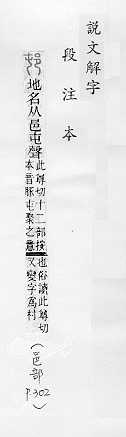 說文解字
段注本
邨 地名从邑屯聲 此尊切十二部按
本音豚屯聚之意也俗讀此尊切又變字爲村
(邑部 P.302)